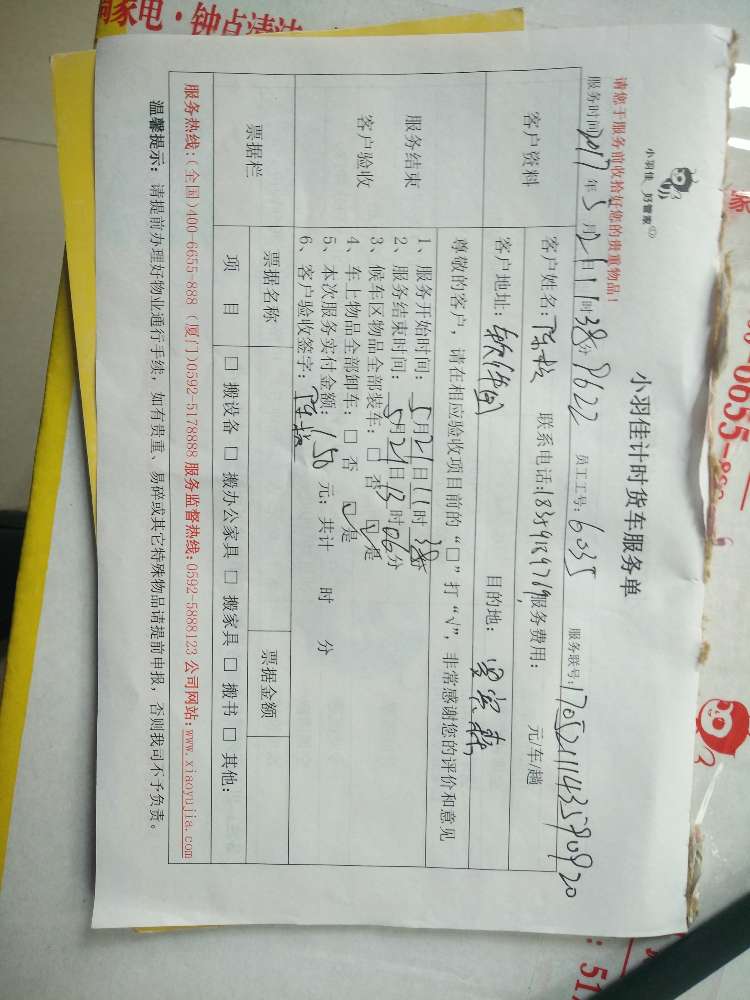 小羽佳 好管家
小羽佳计时货车服务单
请您于服务前收拾好您的贵重物品！
服务时间 2017 年 5 月 21 日 11 时 38 分 8622 员工工号: 6035 服务联号:
客户资料
客户姓名: 联系电话: 服务费用: 元/车/趟
客户地址: 软件园 目的地:
服务结束
客户验收
尊敬的客户，请在相应验收项目前的“□”打“√”，非常感谢您的评价和意见
1、服务开始时间: 5 月 21 日 11 时 38 分
2、服务结束时间: 5 月 21 日 13 时 06 分
3、候车区物品全部装车: □ 否 ☑ 是
4、车上物品全部卸车: □ 否 ☑ 是
5、本次服务实付金额: 150 元; 共计 时 分
6、客户验收签字:
票据栏
票据名称 票据金额
项 目 □ 搬设备 □ 搬办公家具 □ 搬家具 □ 搬书 □ 其他:
服务热线:(全国)400-6655-888 (厦门)0592-5178888 服务监督热线:0592-5888123 公司网站:www.xiaoyujia.com
温馨提示: 请提前办理好物业通行手续，如有贵重、易碎或其它特殊物品请提前申报，否则我司不予负责。
家电·钟点清洁